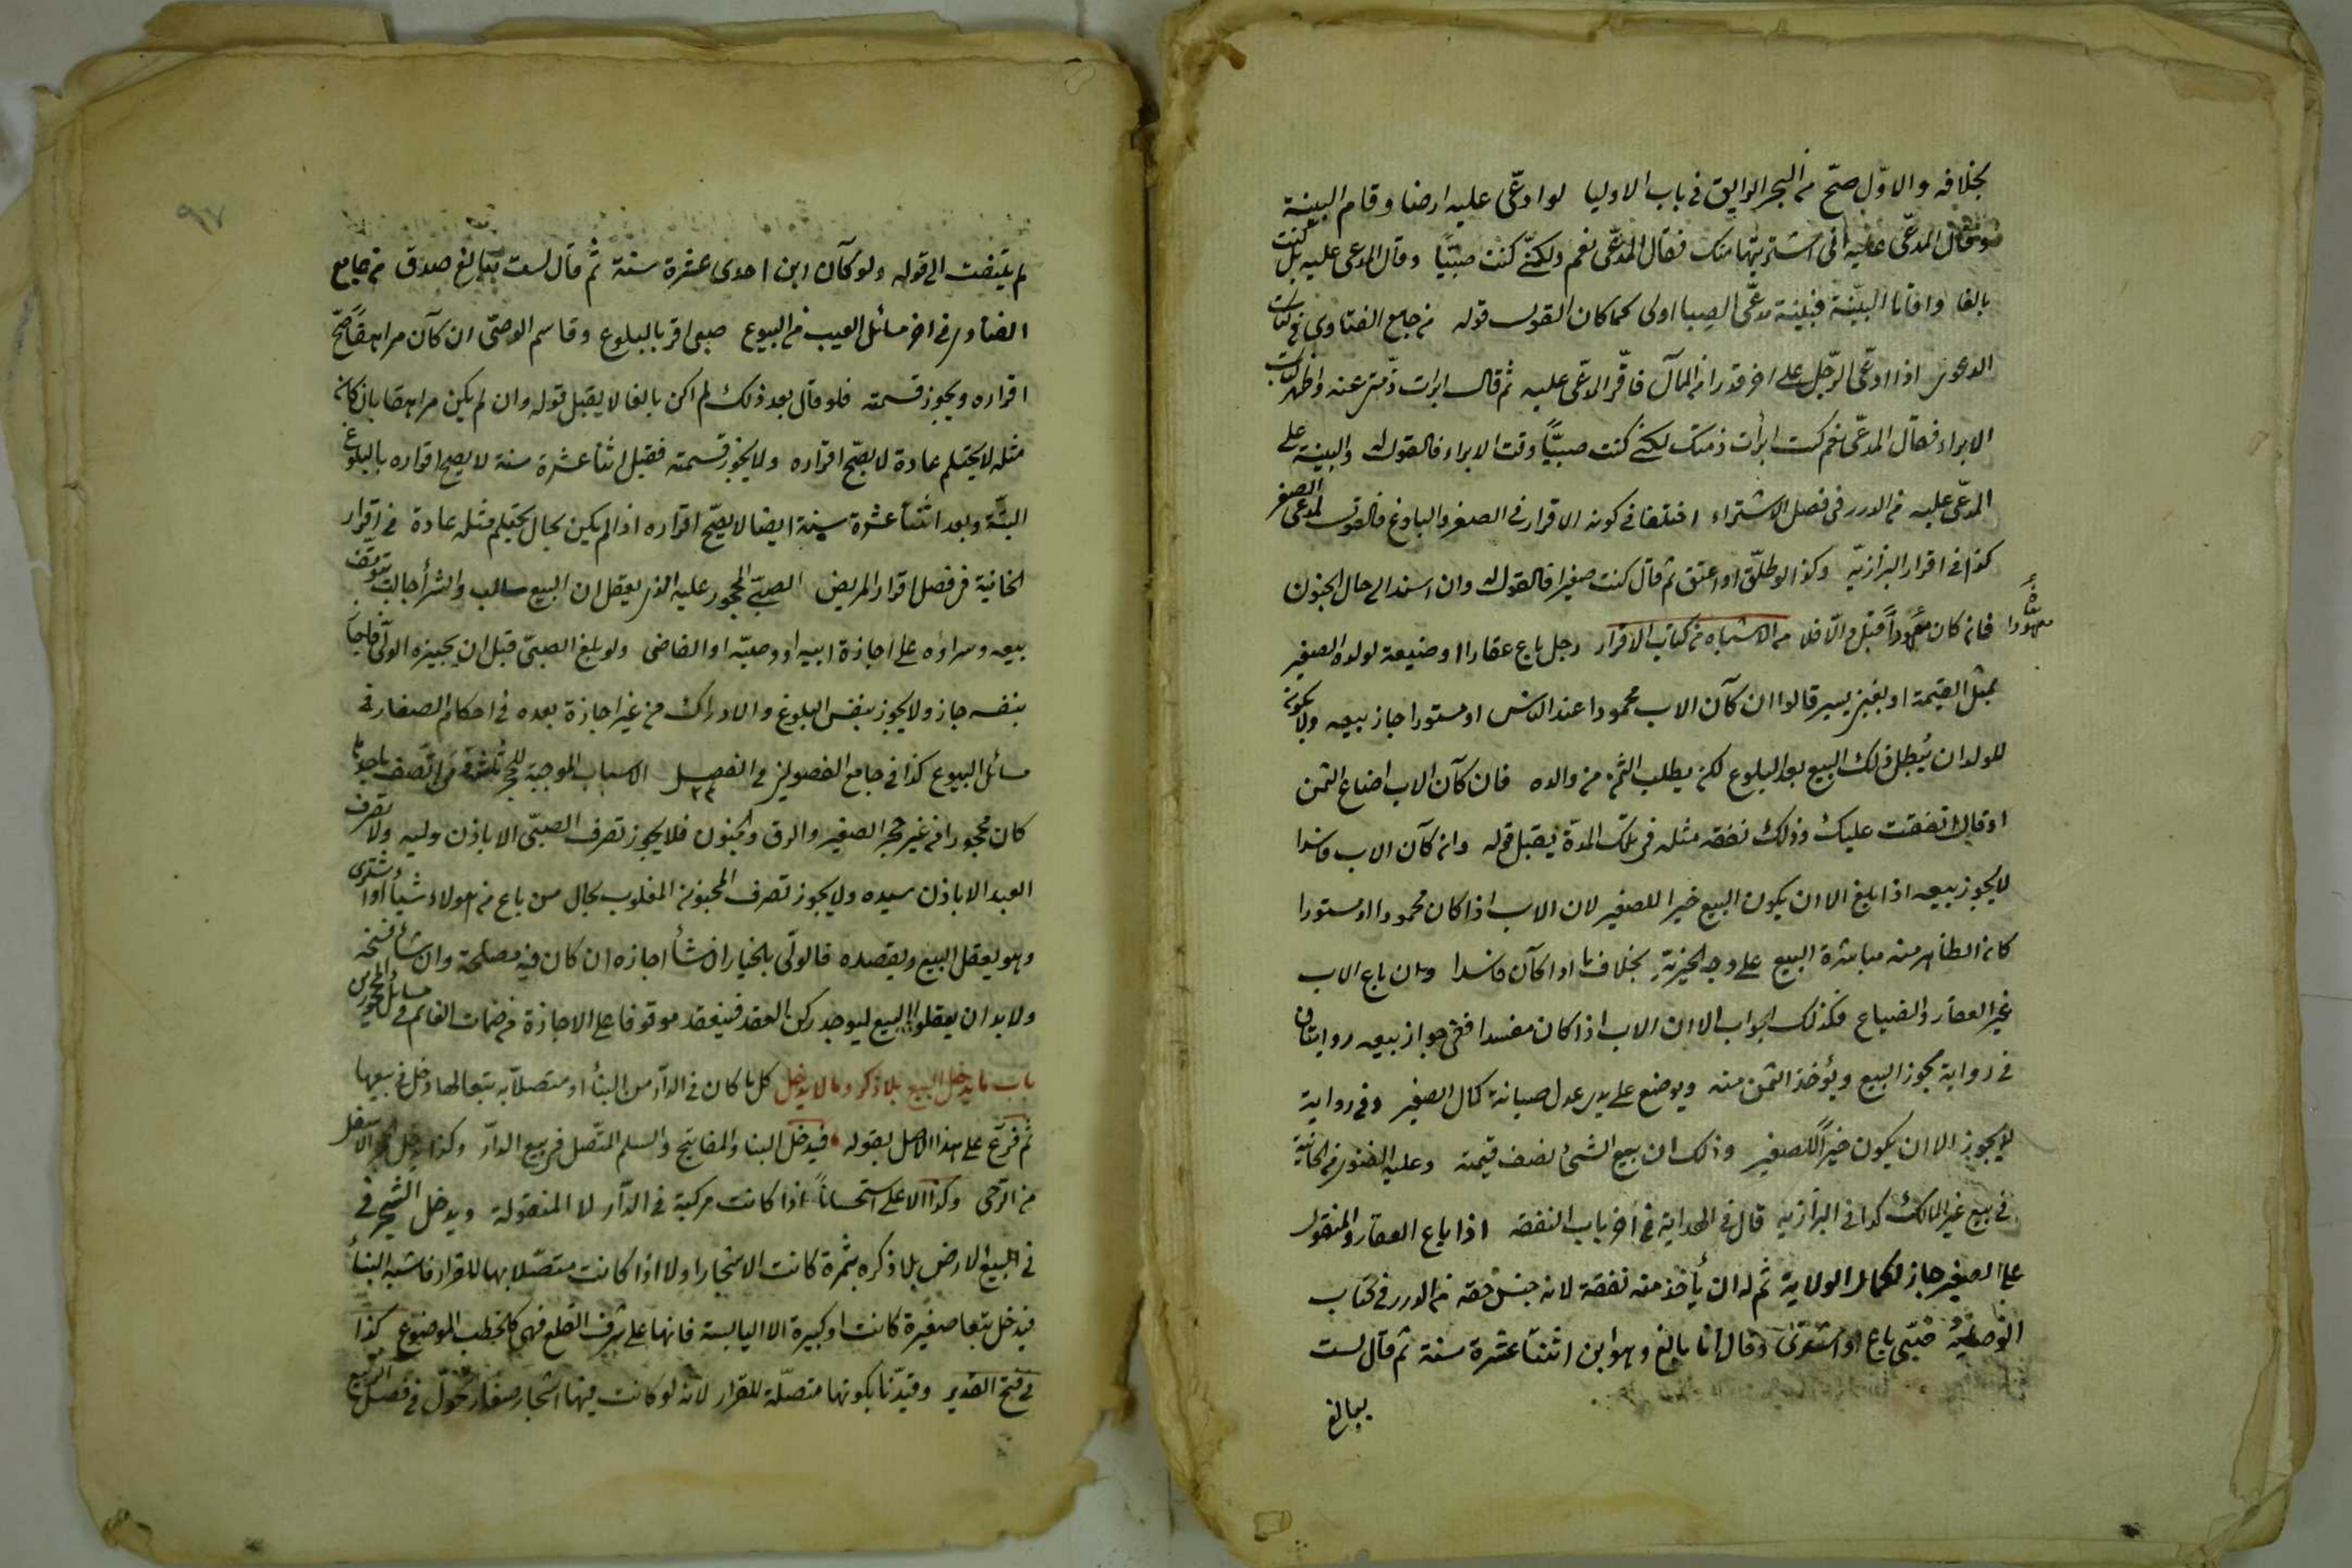 بخلافه والاوّل صحّ من البحر الرايق فى باب الاوليا لو ادّعى عليه ارضا وقام البينة
وقال المدّعى عليه انى اشتريتها منك فقال المدّعى نعم ولكنّى كنت صبيّا وقال المدعى عليه بل كنت
بالغا واقاما البيّنة فبيّنة مدعّى الصبا اولى كما كان القول قوله من جامع الفتاوى فى كتاب
الدعوى اذا ادّعى الرّجل على اخر قدرا من المال فاقرّ المدّعى عليه ثم قال ابرات ذمّتى عنه واظهر كتاب
الابراء فقال المدّعى نعم كنت ابرأت ذمتك لكنى كنت صبيّاً وقت الابراء فالقول له والبينة على
المدّعى عليه من الدرر فى فصل الاشتراء اختلفا فى كونه الاقرار فى الصغر والبلوغ فالقول لمدعى الصغر
كذا فى اقرار البزازيّه وكذا لو طلّق او اعتق ثم قال كنت صغيرا فالقول له وان اسند الى حال الجنون
فان كان معهوداً قبل والّا فلا من الاشباه من كتاب الاقرار رجل باع عقارا او ضيعة لولده الصغير
معهودا
بمثل القيمة او بغبن يسير قالوا ان كان الاب محمودا عند الناس او مستورا جاز بيعه ولا يكون
للولد ان يُبطل ذلك البيع بعد البلوغ لكن يطلب الثمن من والده فان كان الاب اضاع الثمن
او قال انفقت عليك وذلك نفقة مثله فى تلك المدّة يقبل قوله وان كان الاب فاسدا
لا يجوز بيعه اذا بلغ الا ان يكون البيع خيرا للصغير لان الاب اذا كان محمودا او مستورا
كان الظاهر منه مباشرة البيع على وجه الخيريّة بخلاف ما اذا كان فاسدا وان باع الاب
غير العقار والضياع فكذلك الجواب الا ان الاب اذا كان مفسدا ففى جواز بيعه روايتان
فى رواية يجوز البيع ويؤخذ الثمن منه ويوضع على يدى عدل صيانة لمال الصغير وفى رواية
لا يجوز الا ان يكون خيراً للصغير وذلك ان بيع الشئ بضعف قيمته وعليه الفتوى من الخانية
فى بيع غير المالك كذا فى البزازيه قال فى الهداية فى اخر باب النفقه اذا باع العقار والمنقول
على الصغير جاز لكمال الولاية ثم له ان يأخذ منه نفقة لانه جنس حقه من الدرر فى كتاب
الوصية صبّى باع او اشترى وقال انا بالغ وهو ابن اثنتا عشرة سنة ثم قال لست
ببالغ
٩٧
لم يلتفت الى قوله ولو كان ابن احدى عشرة سنة ثم قال لست ببالغ صدق من جامع
الفتاوى فى اخر مسائل العيب من البيوع صبى اقر بالبلوغ وقاسم الوصىّ ان كان مراهقاً صحّ
اقراره ويجوز قسمته فلو قال بعد ذلك لم اكن بالغا لا يقبل قوله وان لم يكن مراهقا بان كان
مثله لا يحتلم عادة لا يصّح اقراره ولا يجوز قسمته فقبل اثنا عشرة سنة لا يصح اقراره بالبلوغ
البتّة وبعد اثنتا عشرة سنة ايضا لا يصحّ اقراره اذا لم يكن بحال يحتلم مثله عادة فى اقرار
الخانية فى فصل اقرار المريض الصبىّ المحجور عليه الذى يعقل ان البيع سالب والشرأ جالب يتوقف
بيعه وشراؤه على اجازة ابيه او وصيّه او القاضى ولو بلغ الصبىّ قبل ان يجيزه الولّى فاجاز
بنفسه جاز ولا يجوز بنفس البلوغ والادراك من غير اجازة بعده فى احكام الصغار فى
مسائل البيوع كذا فى جامع الفصولين فى الفصل ٣٤ الاسباب الموجبة للحجر ثلثة من اتّصف باحديها
كان محجورا من غير حجر الصغير والرق والجنون فلا يجوز تصرف الصبّى الا باذن وليه ولا تصرف
العبد الا باذن سيده ولا يجوز تصرف المجنون المغلوب بحال من باع من هولاء شيأ او اشترى
وهو يعقل البيع ويقصده فالولّى بالخيار ان شأ اجازه ان كان فيه مصلحة وان شأ فسخه
ولا بد ان يعقلوا البيع ليوجد ركن العقد فينعقد موقوفا على الاجازة من ضمانات الغانم فى مسائل المحجورين
باب ما يدخل البيع بلا ذكر وما لا يدخل كل ما كان فى الدار من البنأ او متصلا به تبعا لها دخل فى بيعها
ثم فرّع على هذا الاصل بقوله فيدخل البنا والمفاتيح والسلم المتّصل فى بيع الدار وكذا يدخل الحجر الاسفل
من الرّحى وكذا الاعلى استحساناً اذا كانت مركبة فى الدار لا المنقولة ويدخل الشجر فى
فى البيع الارض بلا ذكره مثمرة كانت الاشجار او لا اذا كانت متصّلا بها للقرار فاشبه البنأ
فيدخل تبعا صغيرة كانت او كبيرة الا اليابسة فانها على شرف القلع فهى كالحطب الموضوع كذا
فى فتح القدير وقيدّنا بكونها متصّلة للقرار لانه لو كانت فيها اشجار صغار تحوّل فى فصل الربيع